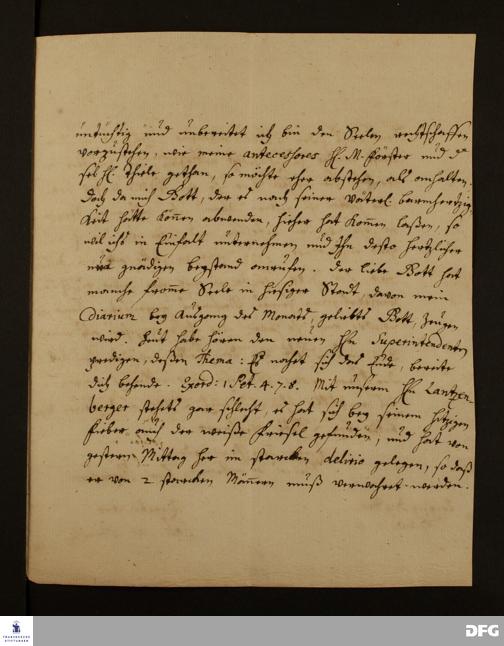 untüchtig und unbereitet ich bin den Seelen rechtschaffen
vorzustehen, wie meine antecessores H. M. Förster und d
sel. H. Thiele gethan, so möchte eher abstehen, als anhalten.
Doch da mich Gott, der es nach seiner väterl. barmhertzig
Keit hätte können abwenden, hieher hat kommen laßen, so
wil ichs in Einfalt unternehmen und Ihn desto hertzlicher
um gnädigen beystand anrufen. Der liebe Gott hat
manche fromme Seele in hiesiger Stadt, davon mein
Diarium bey Ausgang des Monats, geliebts Gott, zeugen
wird. Heut habe hören den neuen Hn Superintendenten
predigen, deßen Thema: Es nahet sich das Ende, bereite
dich behende. Exord: 1 Pet. 4. 7. 8. Mit unserm Hn Lantzen
berger stehets gar schlecht, es hat sich bey seinem hitzigen
fieber auch der weiße frießel gefunden, und hat von
gestern Mittag her im starcken delirio gelegen, so daß
er von 2 starcken Männern muß verwahret werden.
FRANCKESCHE
STIFTUNGEN
DFG